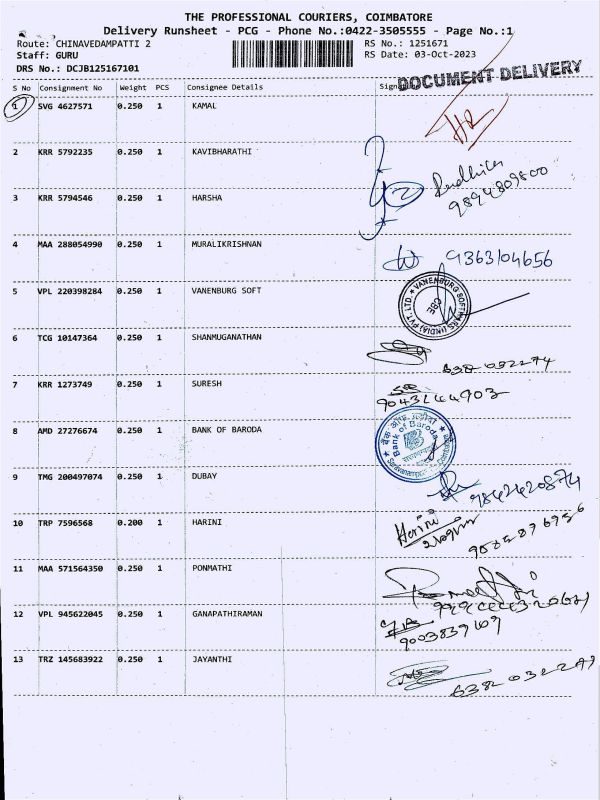 THE PROFESSIONAL COURIERS, COIMBATORE
Delivery Runsheet - PCG - Phone No.:0422-3505555 - Page No.:1
Route: CHINAVEDAMPATTI 2
RS No.: 1251671
Staff: GURU
RS Date: 03-Oct-2023
DRS No.: DCJB125167101
DOCUMENT DELIVERY
S No Consignment No Weight PCS Consignee Details
1 SVG 4627571 0.250 1 KAMAL
2 KRR 5792235 0.250 1 KAVIBHARATHI
Radhika
9894809800
3 KRR 5794546 0.250 1 HARSHA
4 MAA 288054990 0.250 1 MURALIKRISHNAN
9363104656
5 VPL 220398284 0.250 1 VANENBURG SOFT
VANENBURG SOFTWARE (INDIA) PVT. LTD.
CBE
6 TCG 10147364 0.250 1 SHANMUGANATHAN
7 KRR 1273749 0.250 1 SURESH
8 AMD 27276674 0.250 1 BANK OF BARODA
Bank of Baroda
9 TMG 200497074 0.250 1 DUBAY
9842420874
10 TRP 7596568 0.200 1 HARINI
Harini
11 MAA 571564350 0.250 1 PONMATHI
12 VPL 945622045 0.250 1 GANAPATHIRAMAN
9003839109
13 TRZ 145683922 0.250 1 JAYANTHI